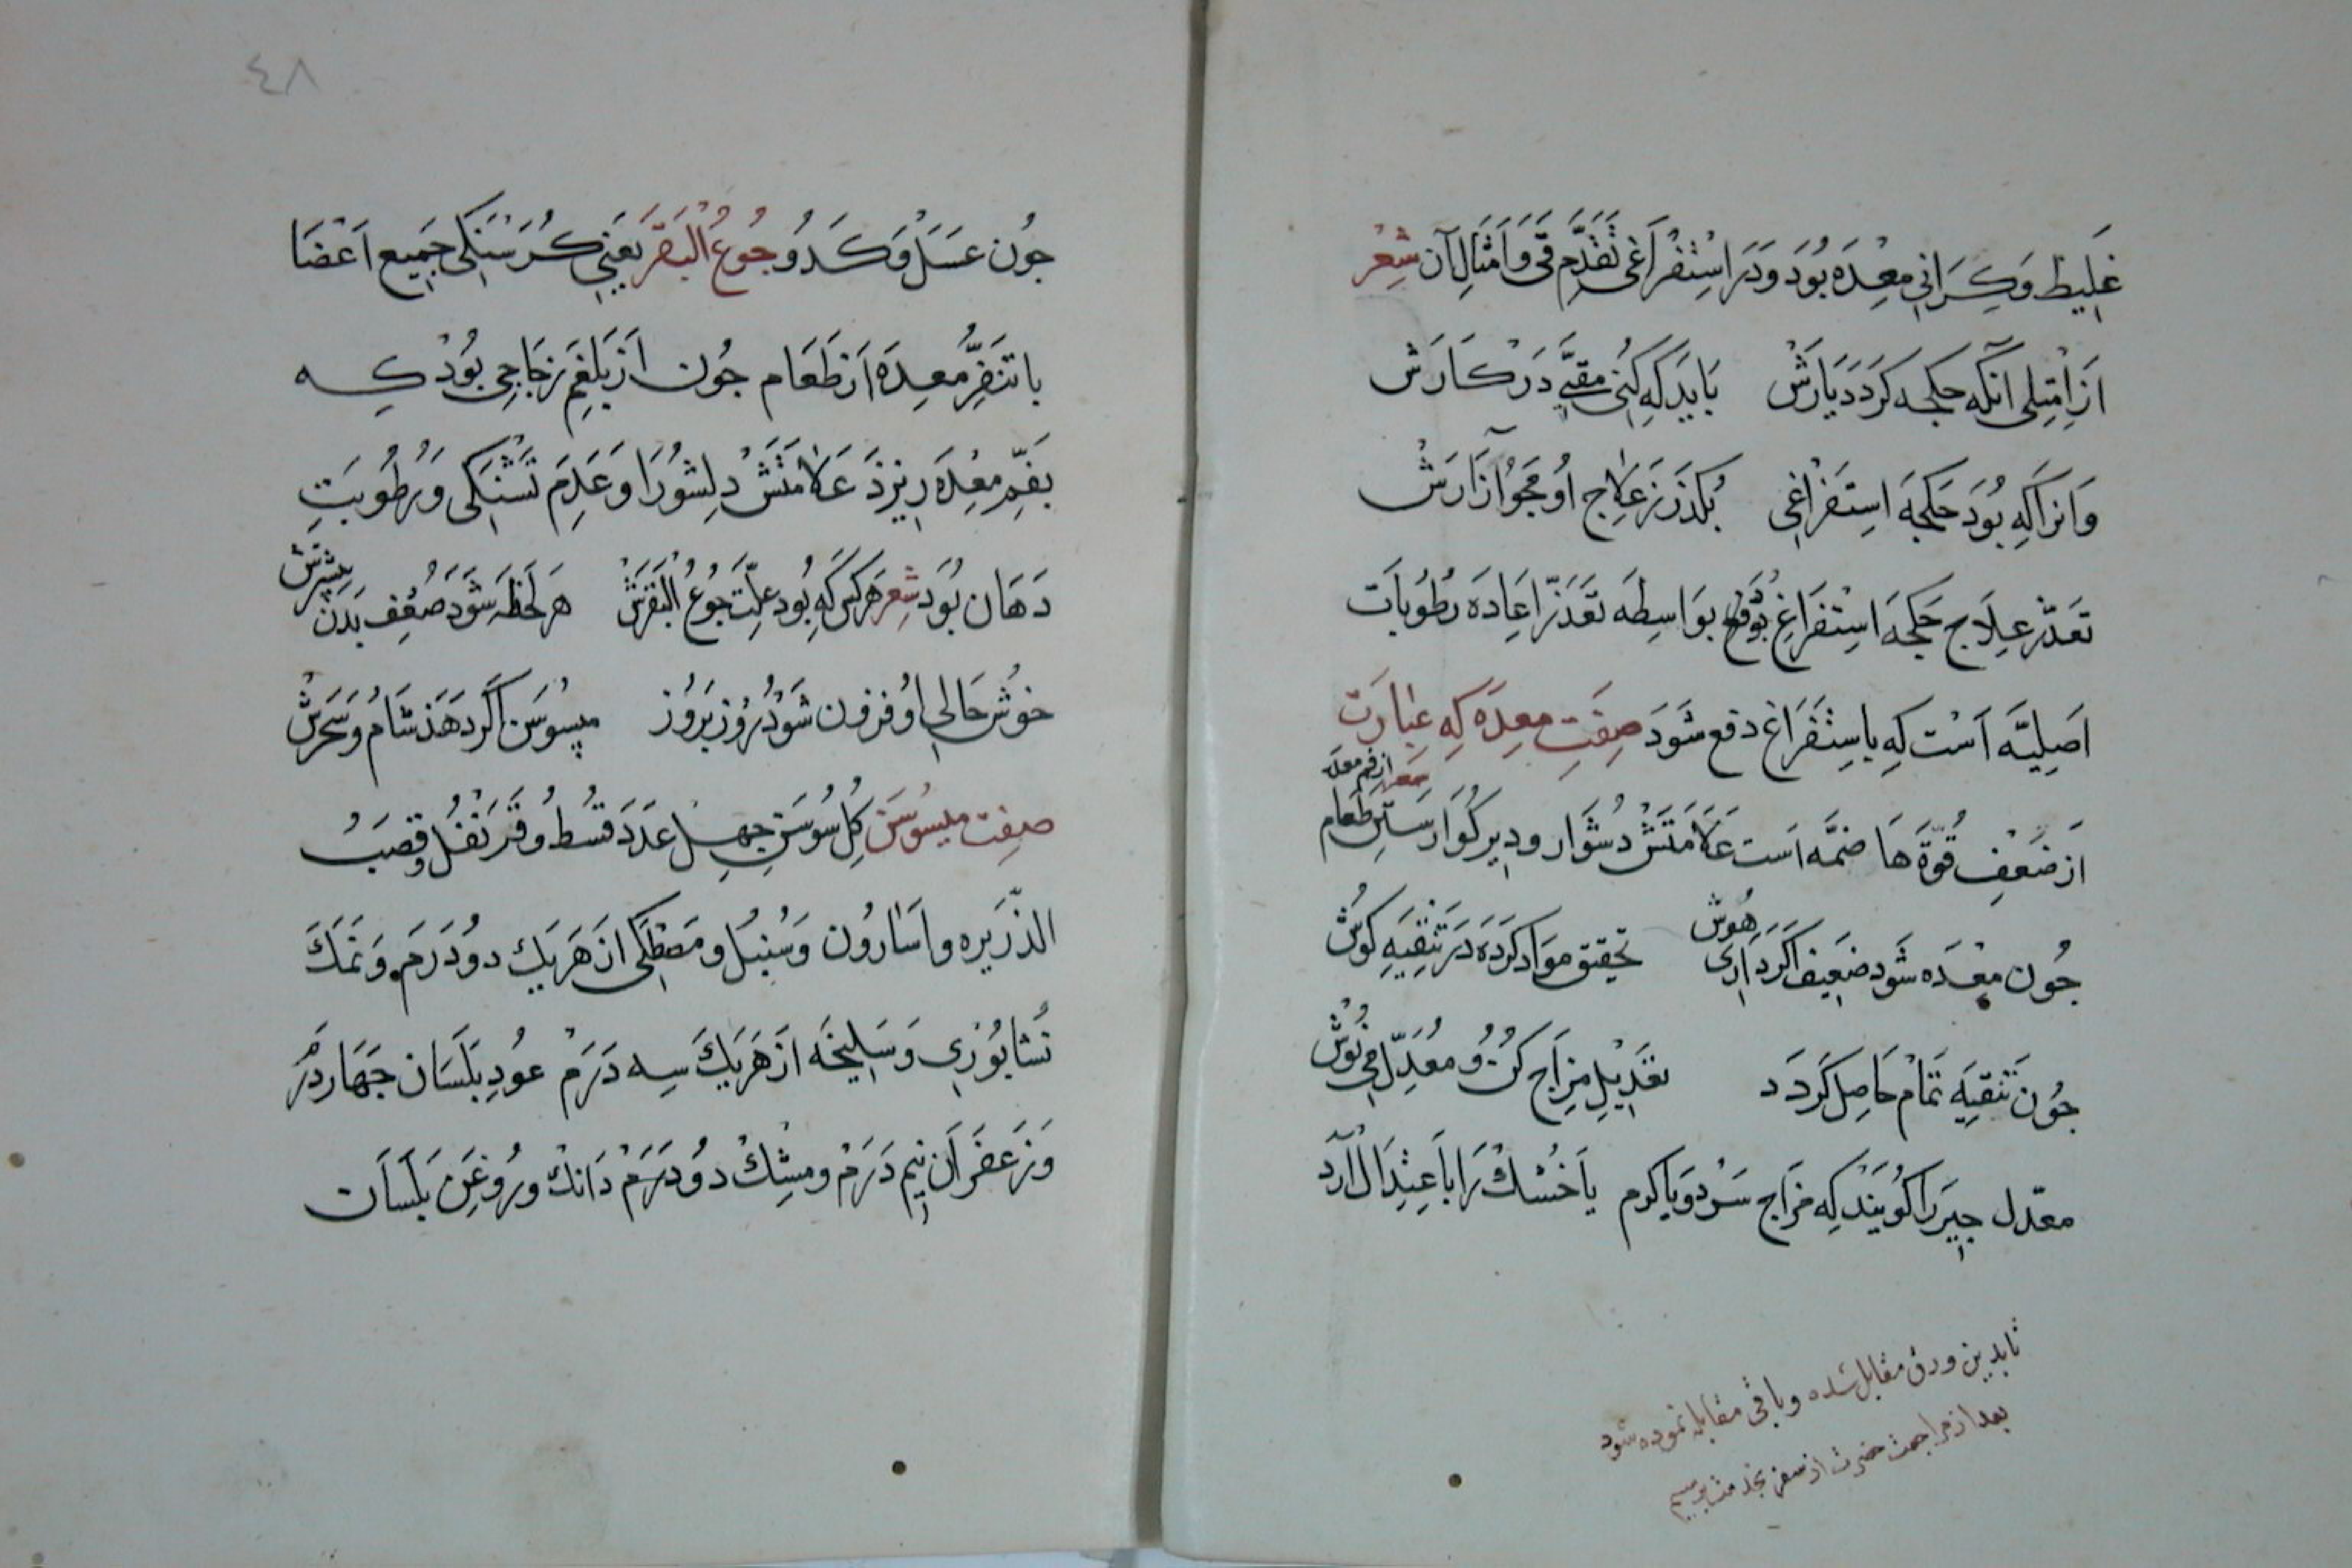 غَلِيظ وَكِرَانِي مِعْدَه بُوَد وَدَر اِسْتِفْرَاغِي تَقَدُّمِ قَي وَاَمْثَالِ آن شِعْر
اَز اِمْتِلِی آنكه حكجه كَرَدَد يَارَش بَايَد كِه كُنِی مُقَيِّی دَر كَارَش
وَانرا كِه بُوَد حَكجَه اِستِفرَاغِی بُكذَر زعِلَاج اُو مَجُو آزَارَش
تَعَذّرِ عِلَاج حَكجَه اِسْتِفرَاغِی بواسِطَه تَعَذّرِ اعَادَه رُطُوبَات
اَصلِيّه اَست كِه باِستِفرَاغ دفع شَوَد صِفَتِ معِدَه كِه عِبَارَت
از فم معده
اَز ضَعْفِ قُوّة هَا ضمّه اَست عَلَامَتَش دُشوَار و دِير كُوَارَستن طَعَام
جُون معْدَه شَوَد ضَعِيف اَكَر دَارِی هُوش تحقيق موَاد كَرَدَه دَر تَنْقِيَه كوش
جُون تَنقِيَه تَمَام حَاصِل كَردَد تَعْدِيلِ مِزَاج كُن وُ معَدِّل مِی نُوش
معدّل جِيزرا كُويَند كِه مزَاج سَرد وَيا كرم يا خُشك رَا باعتِدَال آرد
تا بدين ورق مقابل شده وباقی مقابله نموده شود
بعد از مراجعت حضرت از سفر
٤٨
جُون عسَل وَكَدُو جُوعُ البَقَر يَعنِی كُرَسْنَكی جَمِيع اَعْضَا
با تنفّر معِدَه اَز طَعَام جُون اَز بَلغَم زجَاجِی بُوَد كِه
بفَمِ معِدَه رِيزَد عَلَامَتَش دِلشُورَا وَعَدَم تَشنَكی وَرُطُوبَتِ
دَهَان بُوَد شعر هَركس كِه بُود عِلّت جُوعُ البَقَرَش هَر لَحظَه شَوَد ضَعْفِ بَدَن بيشترش
خوُش حَالِی اُو فزون شَود رُوز بَرُوز ميسُوسَن اَكَر دهَند شام وُ سَحَرش
صِفت ميسُوسَن كُل سُوسَن جهِل عَدَد قسُط وُ قَرَنفُل وقصَبُ
الذّرَيره واسَارُون وَسُنبُل ومَصْطَكی از هَريك دو دَرَم وَنَمَك
نشَابُورِی وَسَلِيخَه از هَريَك سِه دَرَم عُودِ بَلَسَان جَهَار دَرَم
وَزَعفَرَان نِيم دَرَم ومشِك دو دَرَم دَانك ورُوغَن بَلَسَان